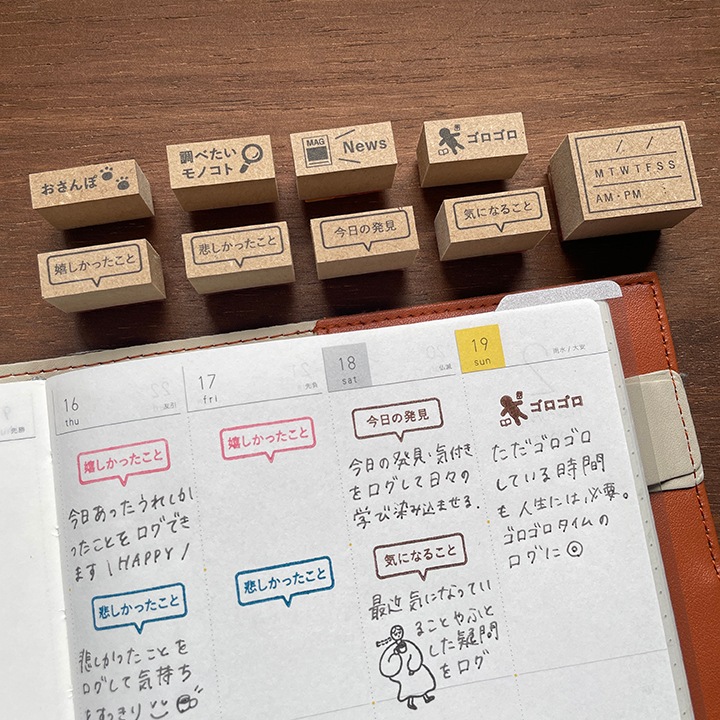 おさんぽ
調べたい
モノコト
MAG
News
ゴロゴロ
/ /
M T W T F S S
AM・PM :
嬉しかったこと
悲しかったこと
今日の発見
気になること
16
thu
友引
17
fri
先負
18
sat
仏滅
19
sun
雨水/大安
嬉しかったこと
今日あったうれしか
ったことをログでき
ます\HAPPY/
悲しかったこと
悲しかったことを
ログして気持ち
をすっきり
嬉しかったこと
悲しかったこと
今日の発見
今日の発見・気付き
をログして日々の
学び染み込ませる.
気になること
最近気になってい
ることやふと
した疑問
をログ
ゴロゴロ
ただゴロゴロ
している時間
も人生には必要。
ゴロゴロタイムの
ログに◎